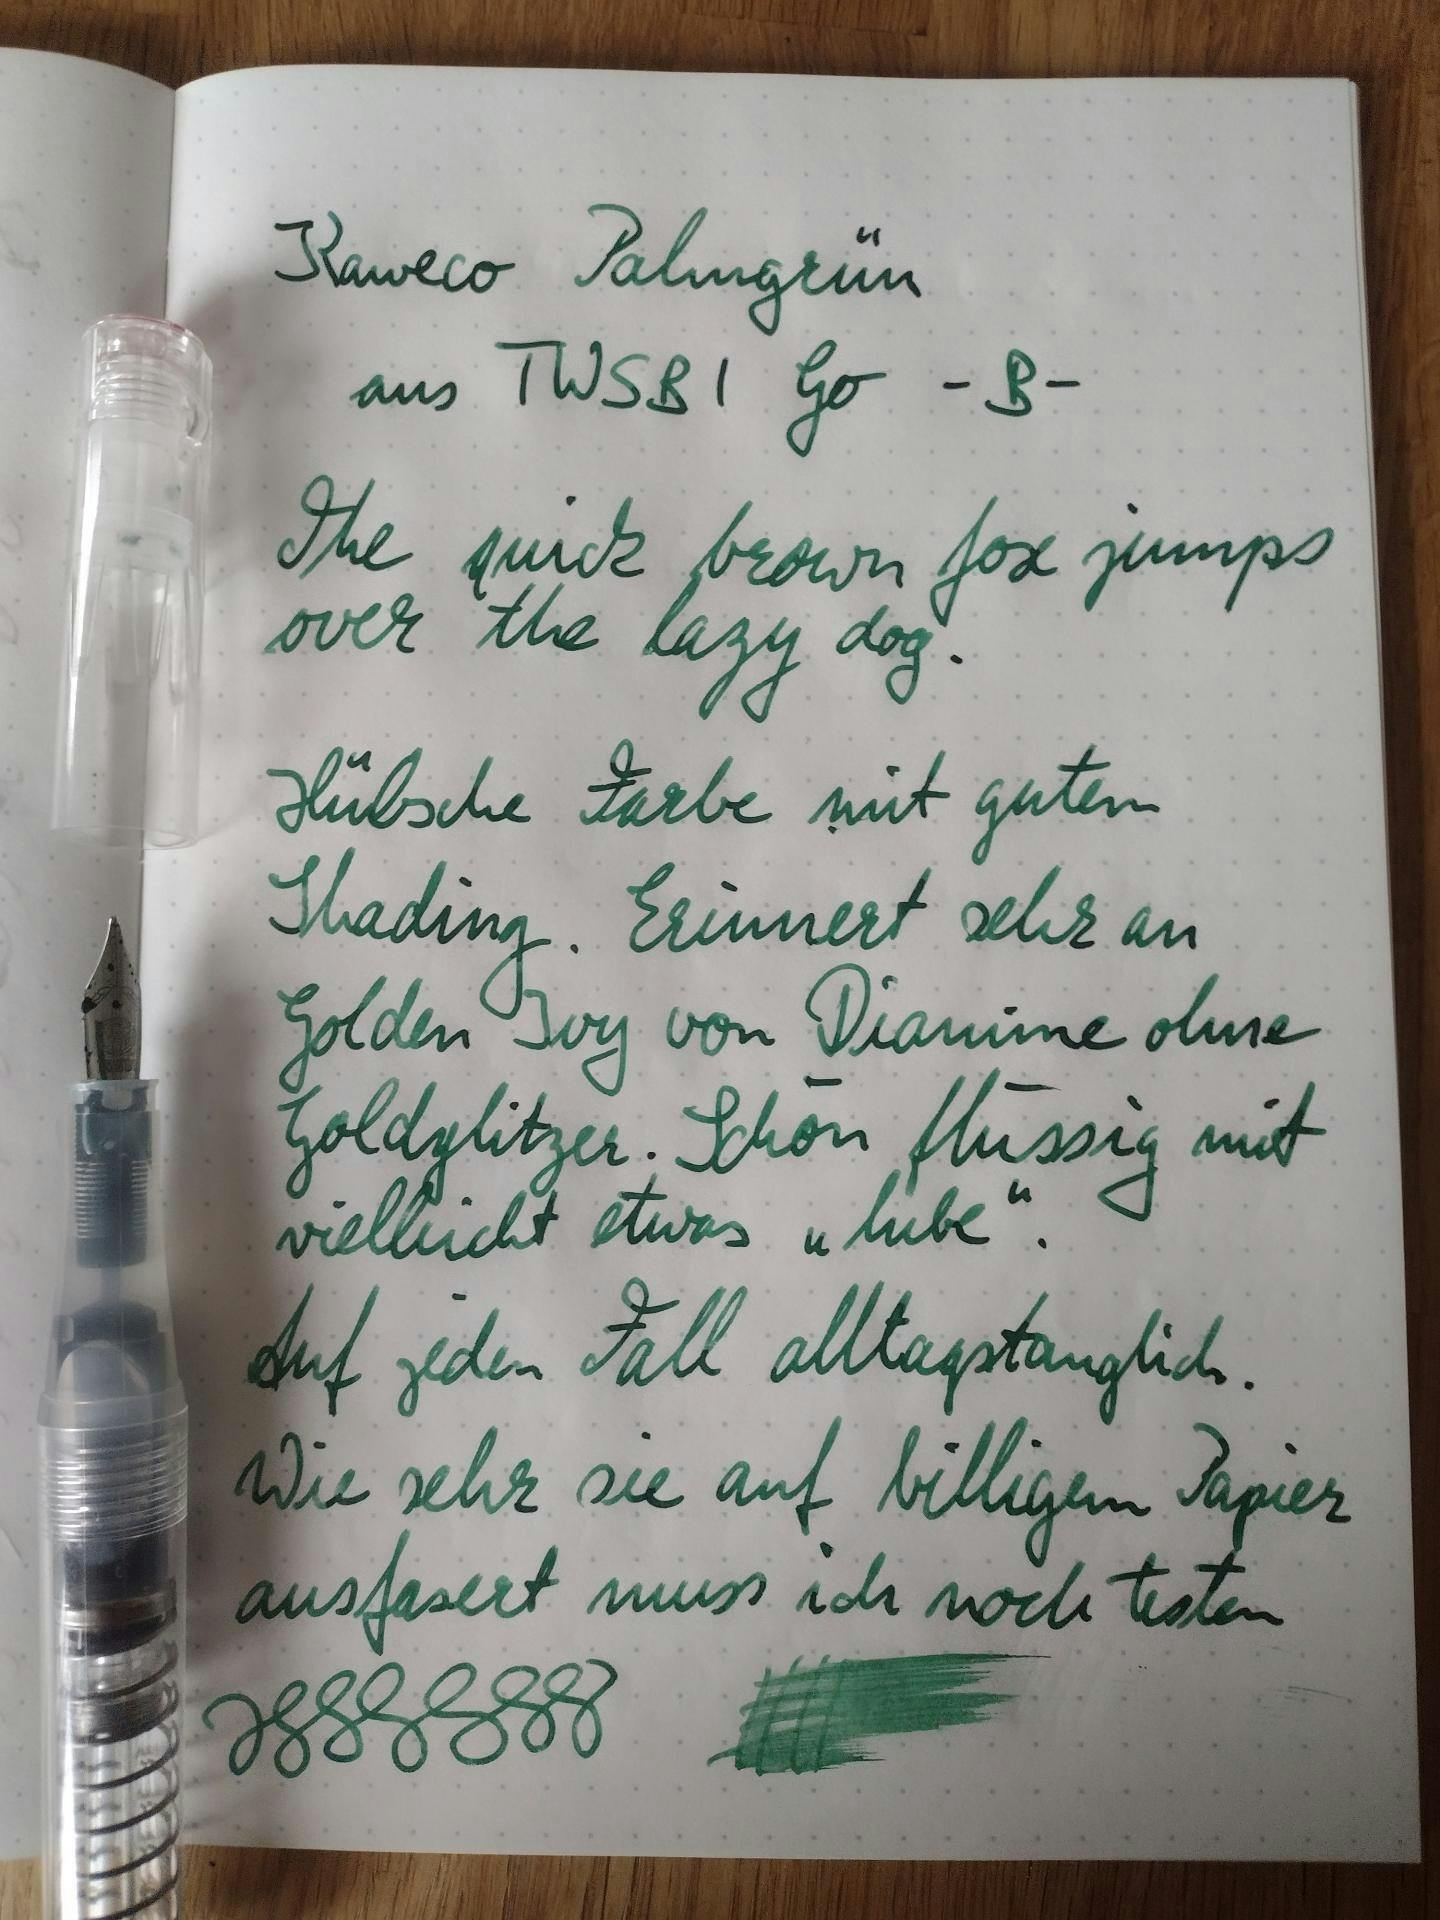 Kaweco Palmgrün
aus TWSBI Go -B-
The quick brown fox jumps
over the lazy dog.
Hübsche Farbe mit gutem
Shading. Erinnert sehr an
Golden Ivy von Diamine ohne
Goldglitzer. Schön flüssig mit
vielleicht etwas „lube“.
Auf jeden Fall alltagstauglich.
Wie sehr sie auf billigem Papier
ausfasert muss ich noch testen